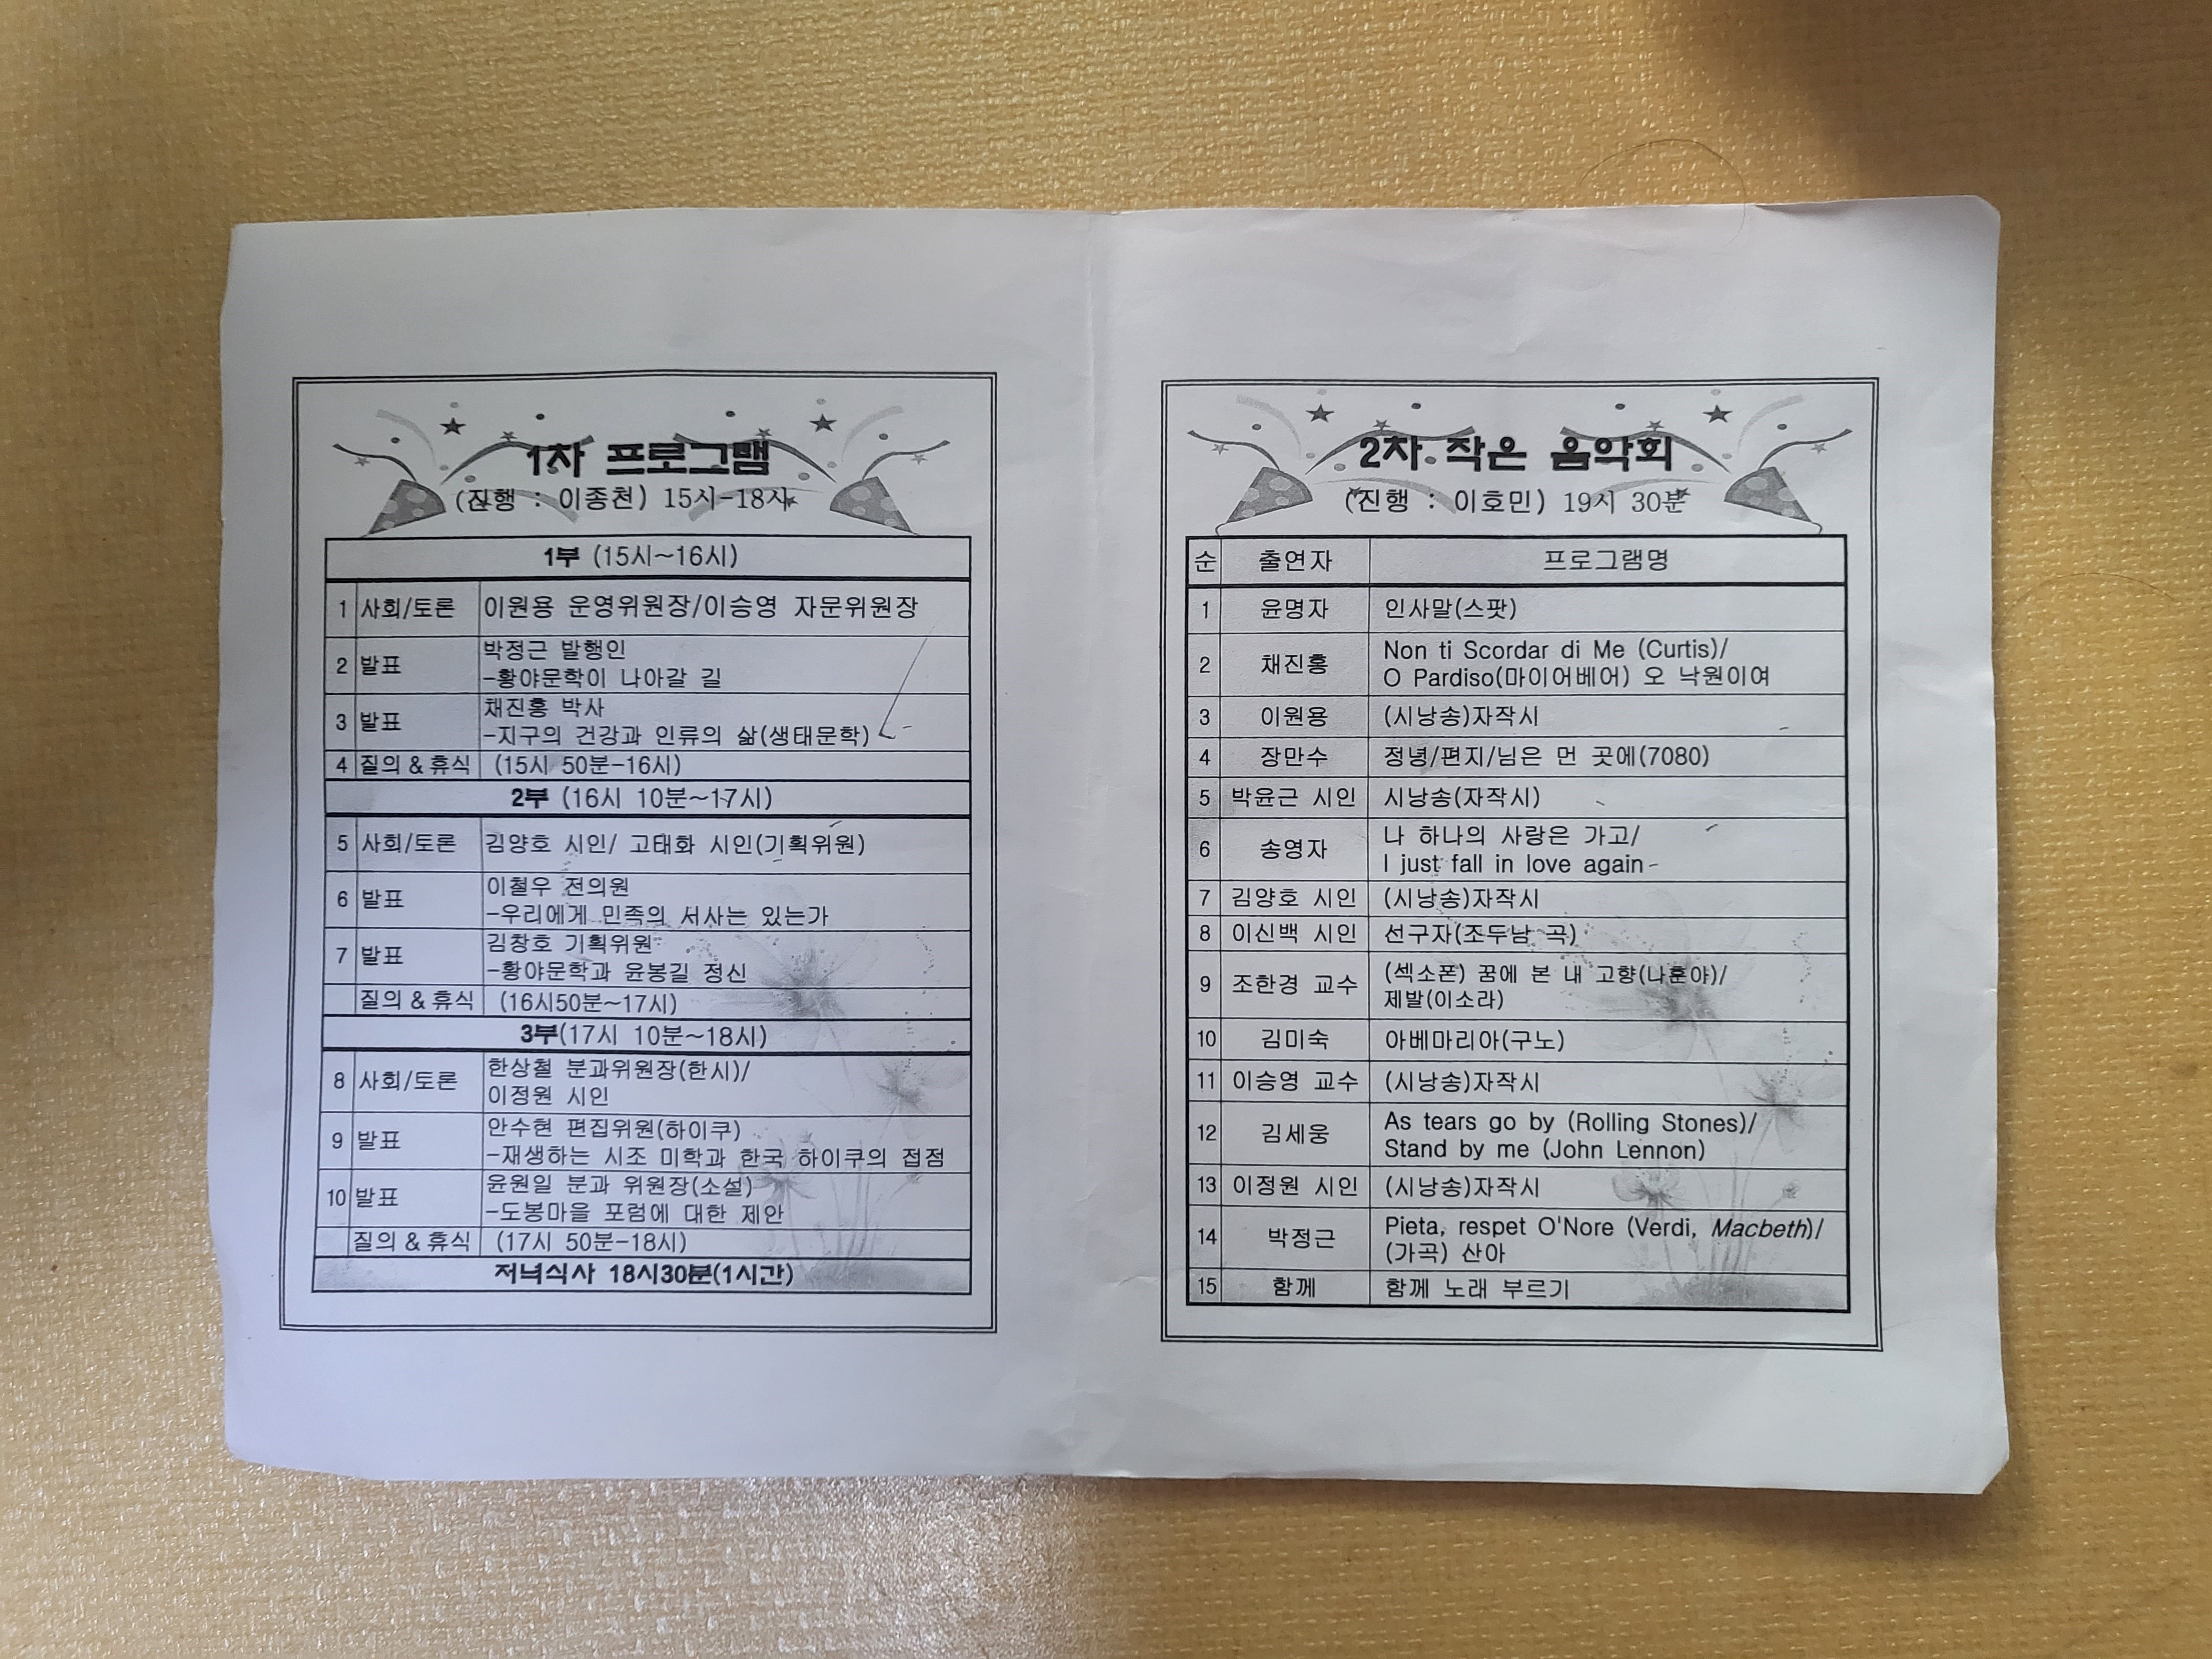 1차 프로그램
(진행 : 이종천) 15시-18시
1부 (15시~16시)
1 사회/토론 이원용 운영위원장/이승영 자문위원장
2 발표 박정근 발행인
-황야문학이 나아갈 길
3 발표 채진홍 박사
-지구의 건강과 인류의 삶(생태문학)
4 질의 & 휴식 (15시 50분-16시)
2부 (16시 10분~17시)
5 사회/토론 김양호 시인/ 고태화 시인(기획위원)
6 발표 이철우 전의원
-우리에게 민족의 서사는 있는가
7 발표 김창호 기획위원
-황야문학과 윤봉길 정신
질의 & 휴식 (16시50분~17시)
3부(17시 10분~18시)
8 사회/토론 한상철 분과위원장(한시)/
이정원 시인
9 발표 안수현 편집위원(하이쿠)
-재생하는 시조 미학과 한국 하이쿠의 접점
10 발표 윤원일 분과 위원장(소설)
-도봉마을 포럼에 대한 제안
질의 & 휴식 (17시 50분-18시)
저녁식사 18시30분(1시간)
2차 작은 음악회
(진행 : 이호민) 19시 30분
순 출연자 프로그램명
1 윤명자 인사말(스팟)
2 채진홍 Non ti Scordar di Me (Curtis)/
O Pardiso(마이어베어) 오 낙원이여
3 이원용 (시낭송)자작시
4 장만수 정녕/편지/님은 먼 곳에(7080)
5 박윤근 시인 시낭송(자작시)
6 송영자 나 하나의 사랑은 가고/
I just fall in love again
7 김양호 시인 (시낭송)자작시
8 이신백 시인 선구자(조두남 곡)
9 조한경 교수 (섹소폰) 꿈에 본 내 고향(나훈아)/
제발(이소라)
10 김미숙 아베마리아(구노)
11 이승영 교수 (시낭송)자작시
12 김세웅 As tears go by (Rolling Stones)/
Stand by me (John Lennon)
13 이정원 시인 (시낭송)자작시
14 박정근 Pieta, respet O'Nore (Verdi, Macbeth)/
(가곡) 산아
15 함께 함께 노래 부르기